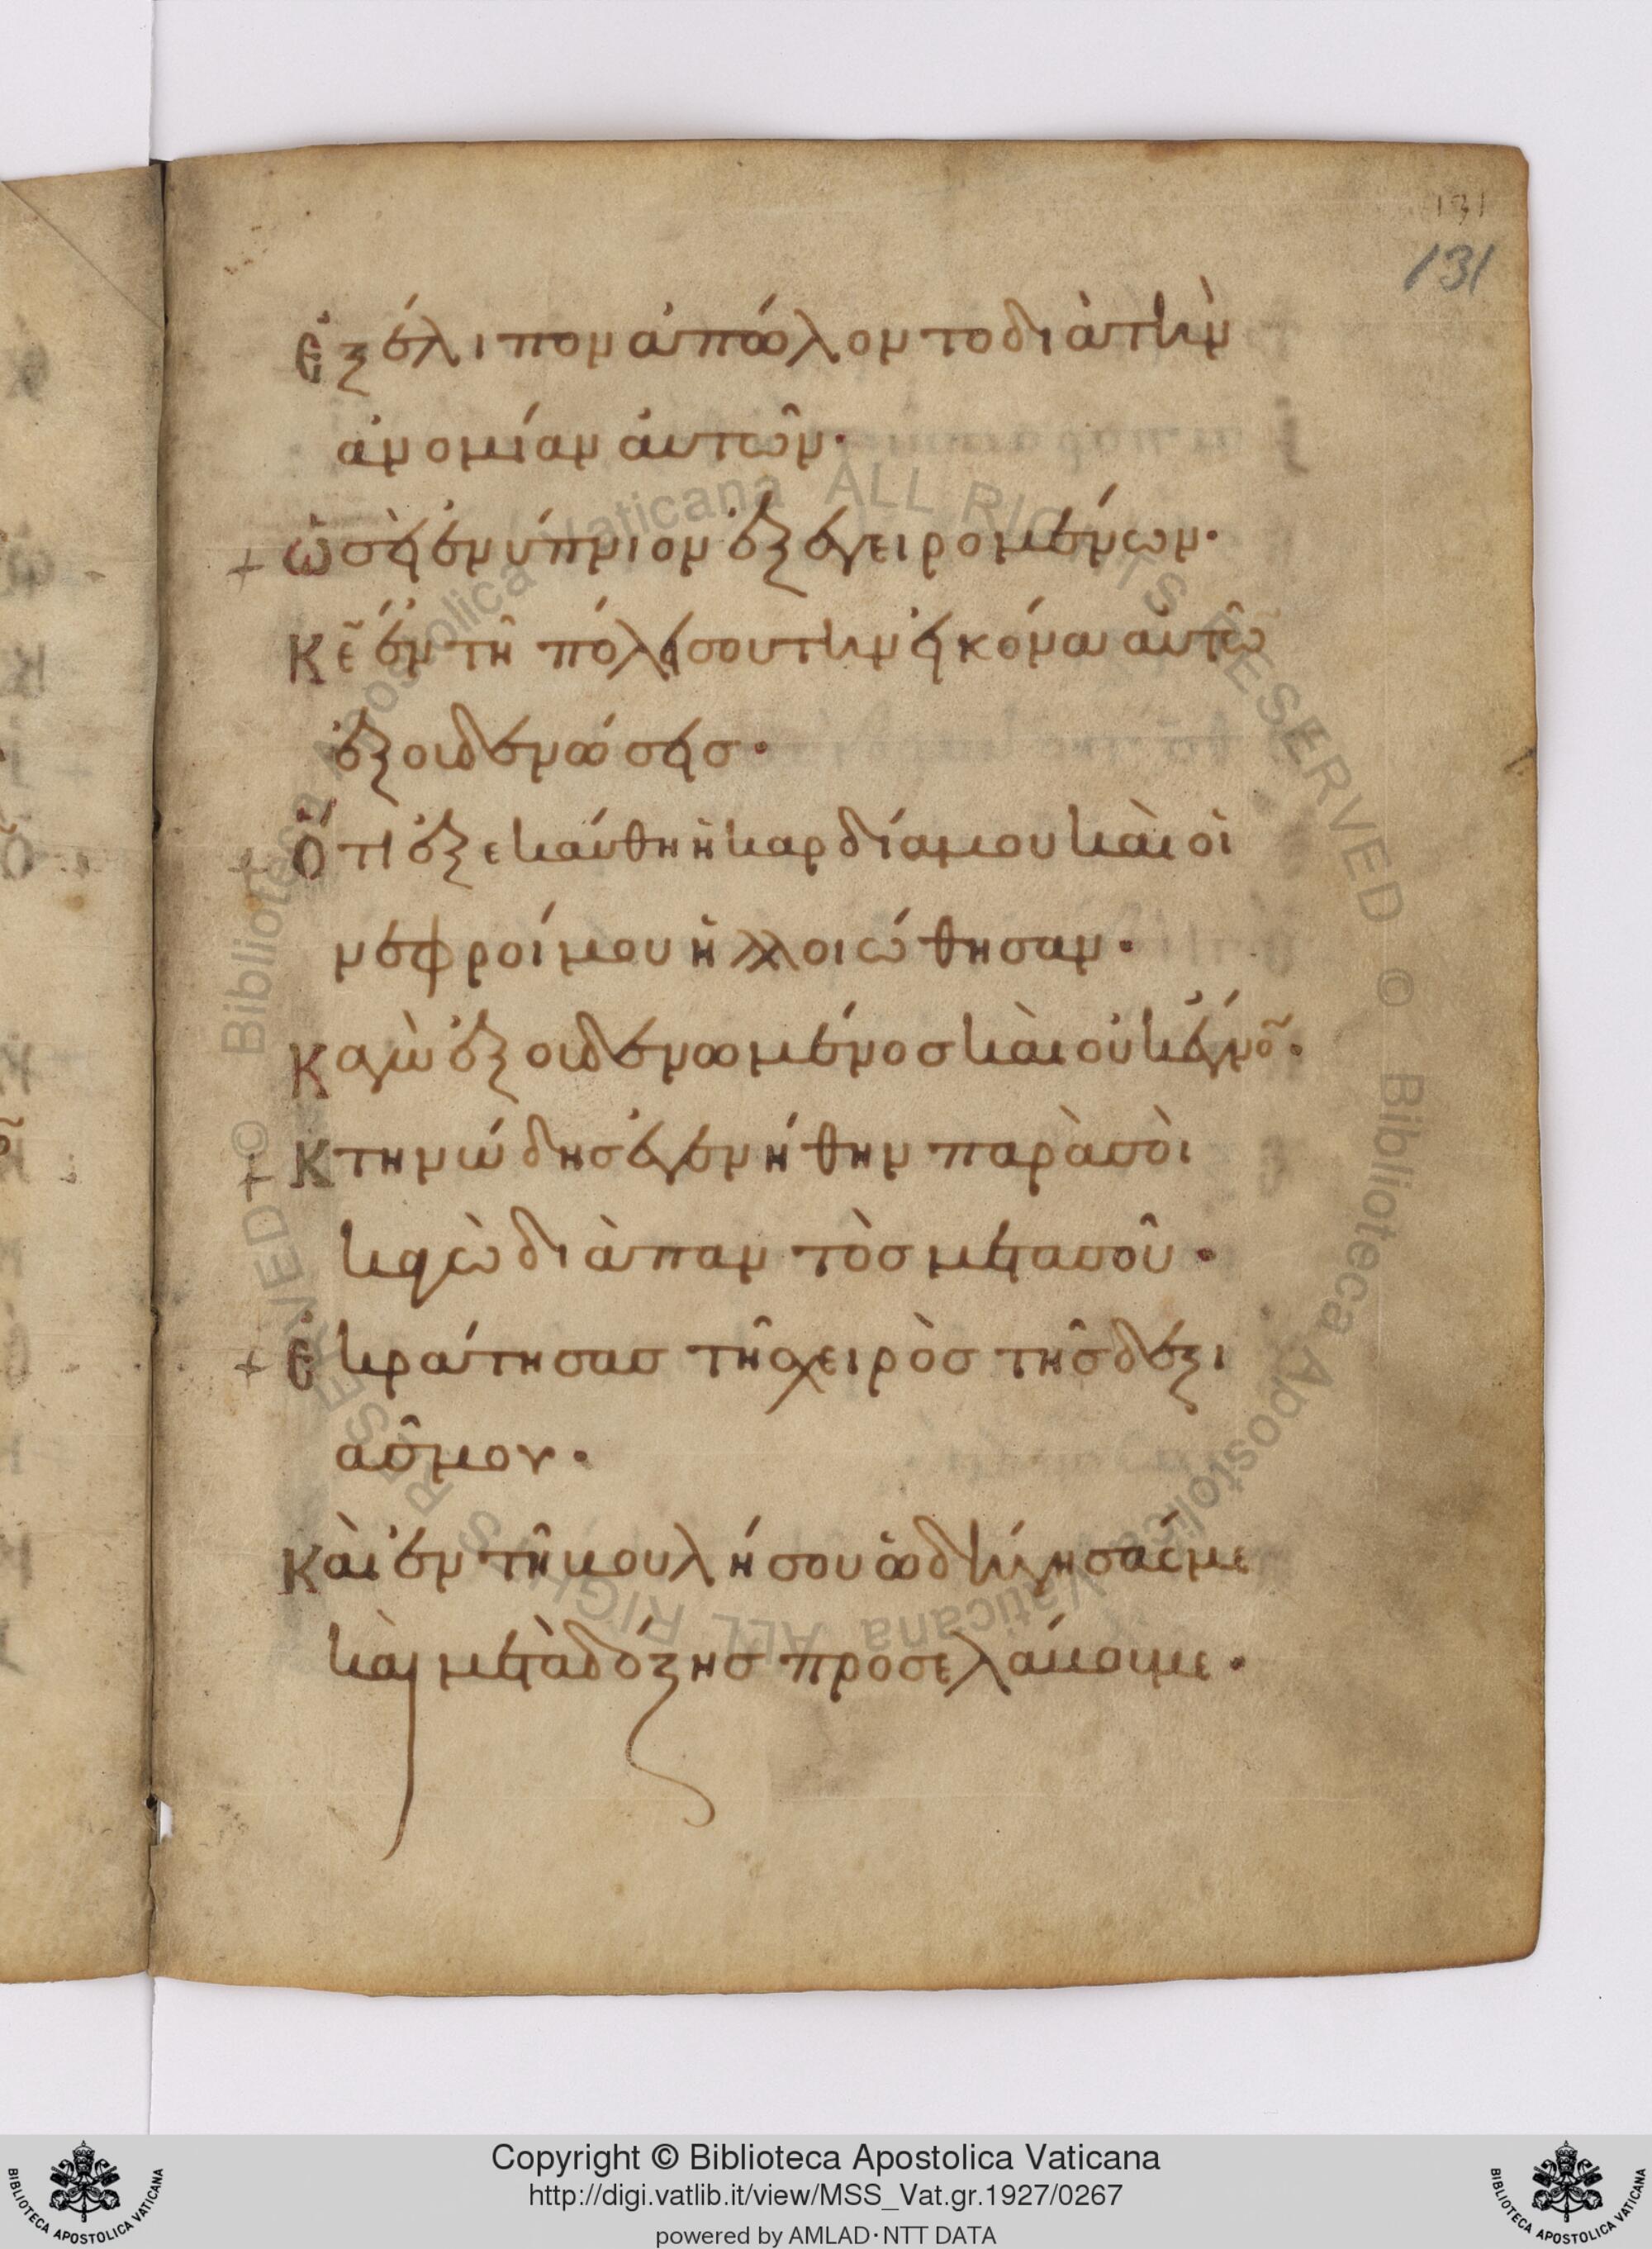 131
131
ἐξέλιπον ἀπώλοντο διὰ τὴν
ἀνομίαν ἀυτῶν·
+ ὡσεὶ ἐνύπνιον ἐξεγειρομένων·
Κε̃ ἐν τῆ πόλει σου τὴν εἰκόνα ἀυτῶ̃
ἐξουδενώσεισ·
+ Ὅτι ἐξεκάυθη ἡ καρδία μου καὶ οἱ
νεφροί μου ἠλλοιώθησαν·
Καγὼ ἐξουδενωμένοσ καὶ οὐκ ἔγνο̃·
+ Κτηνώδησ ἐγενήθην παρὰ σοὶ
κἀγὼ διὰ παντὸσ μετὰ σοῦ·
+ Ἐκράτησασ τῆσ χειρὸσ τῆσ δέξι
ᾶσ μου·
Καὶ ἐν τῆ βουλή σου ὡδήγησάς με
καὶ μετὰ δόξησ προσελάβου με·
Copyright © Biblioteca Apostolica Vaticana
http://digi.vatlib.it/view/MSS_Vat.gr.1927/0267
powered by AMLAD·NTT DATA
BIBLIOTECA APOSTOLICA VATICANA
BIBLIOTECA APOSTOLICA VATICANA
© Biblioteca Apostolica Vaticana ALL RIGHTS RESERVED © Biblioteca Apostolica Vaticana ALL RIGHTS RESERVED